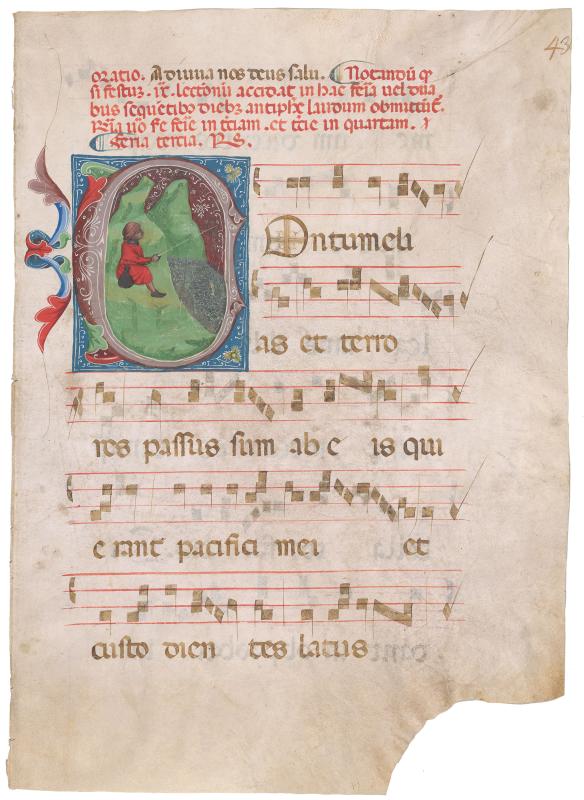 43
oratio. Adiuua nos deus salu. ¶ Notandū q̄
si festuȝ. ix. lectionū accidat in hac feria uel dua
bus sequētibȝ diebȝ antiphe laudum obmittūt̄.
in tc̄iam. et tc̄ie in quartam. ⁊
¶ Feria tercia. RS.
COntumeli
as et terro
res passus sum ab e is qui
e rant pacifici mei et
custo dien tes latus